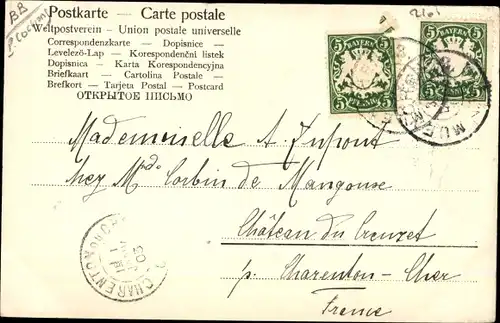 BB
2101
Postkarte — Carte postale
Weltpostverein – Union postale universelle
Correspondenzkarte – Dopisnice –
Levelező-Lap – Korespondenční listek
Dopisnica – Karta Korespondencyjna
Briefkaart – Cartolina Postale –
Brefkort – Tarjeta Postal – Postcard
ОТКРЫТОЕ ПИСЬМО
5 BAYERN 5
5 PFENNIG 5
5 BAYERN 5
5 PFENNIG 5
Mademoiselle A. Dupont
chez Mde Corbin de Mangoux
Château du Creuzet
p. Charenton-Cher
France
CHARENTON DU CHER
03